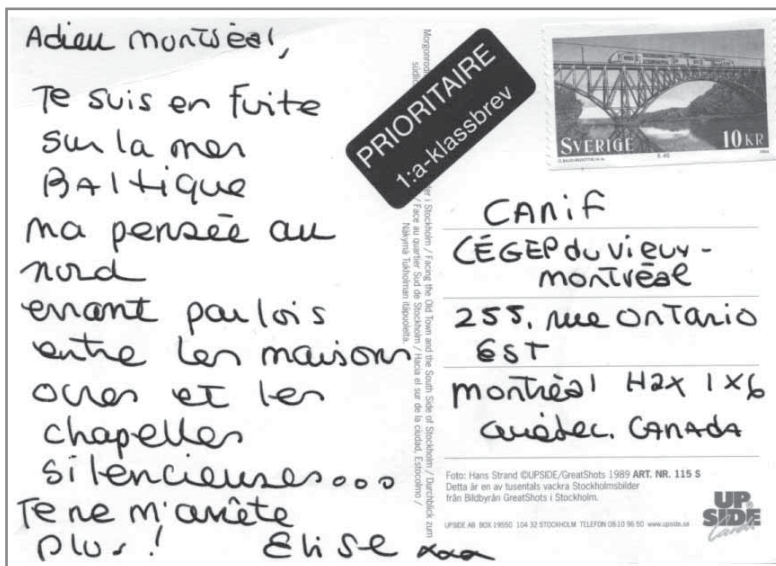 Adieu Montréal,
Je suis en fuite
sur la mer
BALtique
ma pensée au
nord
errant parfois
entre les maisons
ocres et les
chapelles
silencieuses...
Je ne m'arrête
plus! Elise xxx
Facing the Old Town and the South Side of Stockholm / Durchblick zum
/ Face au quartier Sud de Stockholm / Hacia el sur de la ciudad, Estocolmo /
Näkymä Tukholman itäpuolelta.
PRIORITAIRE
1:a-klassbrev
SVERIGE 10 KR
CANIF
CÉGEP du Vieux-
Montréal
255, rue Ontario
EST
Montréal H2X 1X6
Québec. CANADA
Foto: Hans Strand ©UPSIDE/GreatShots 1989 ART. NR. 115 S
Detta är en av tusentals vackra Stockholmsbilder
från Bildbyrån GreatShots i Stockholm.
UPSIDE AB BOX 19550 104 32 STOCKHOLM TELEFON 08-10 96 50 www.upside.se
UP
SIDE
Cards